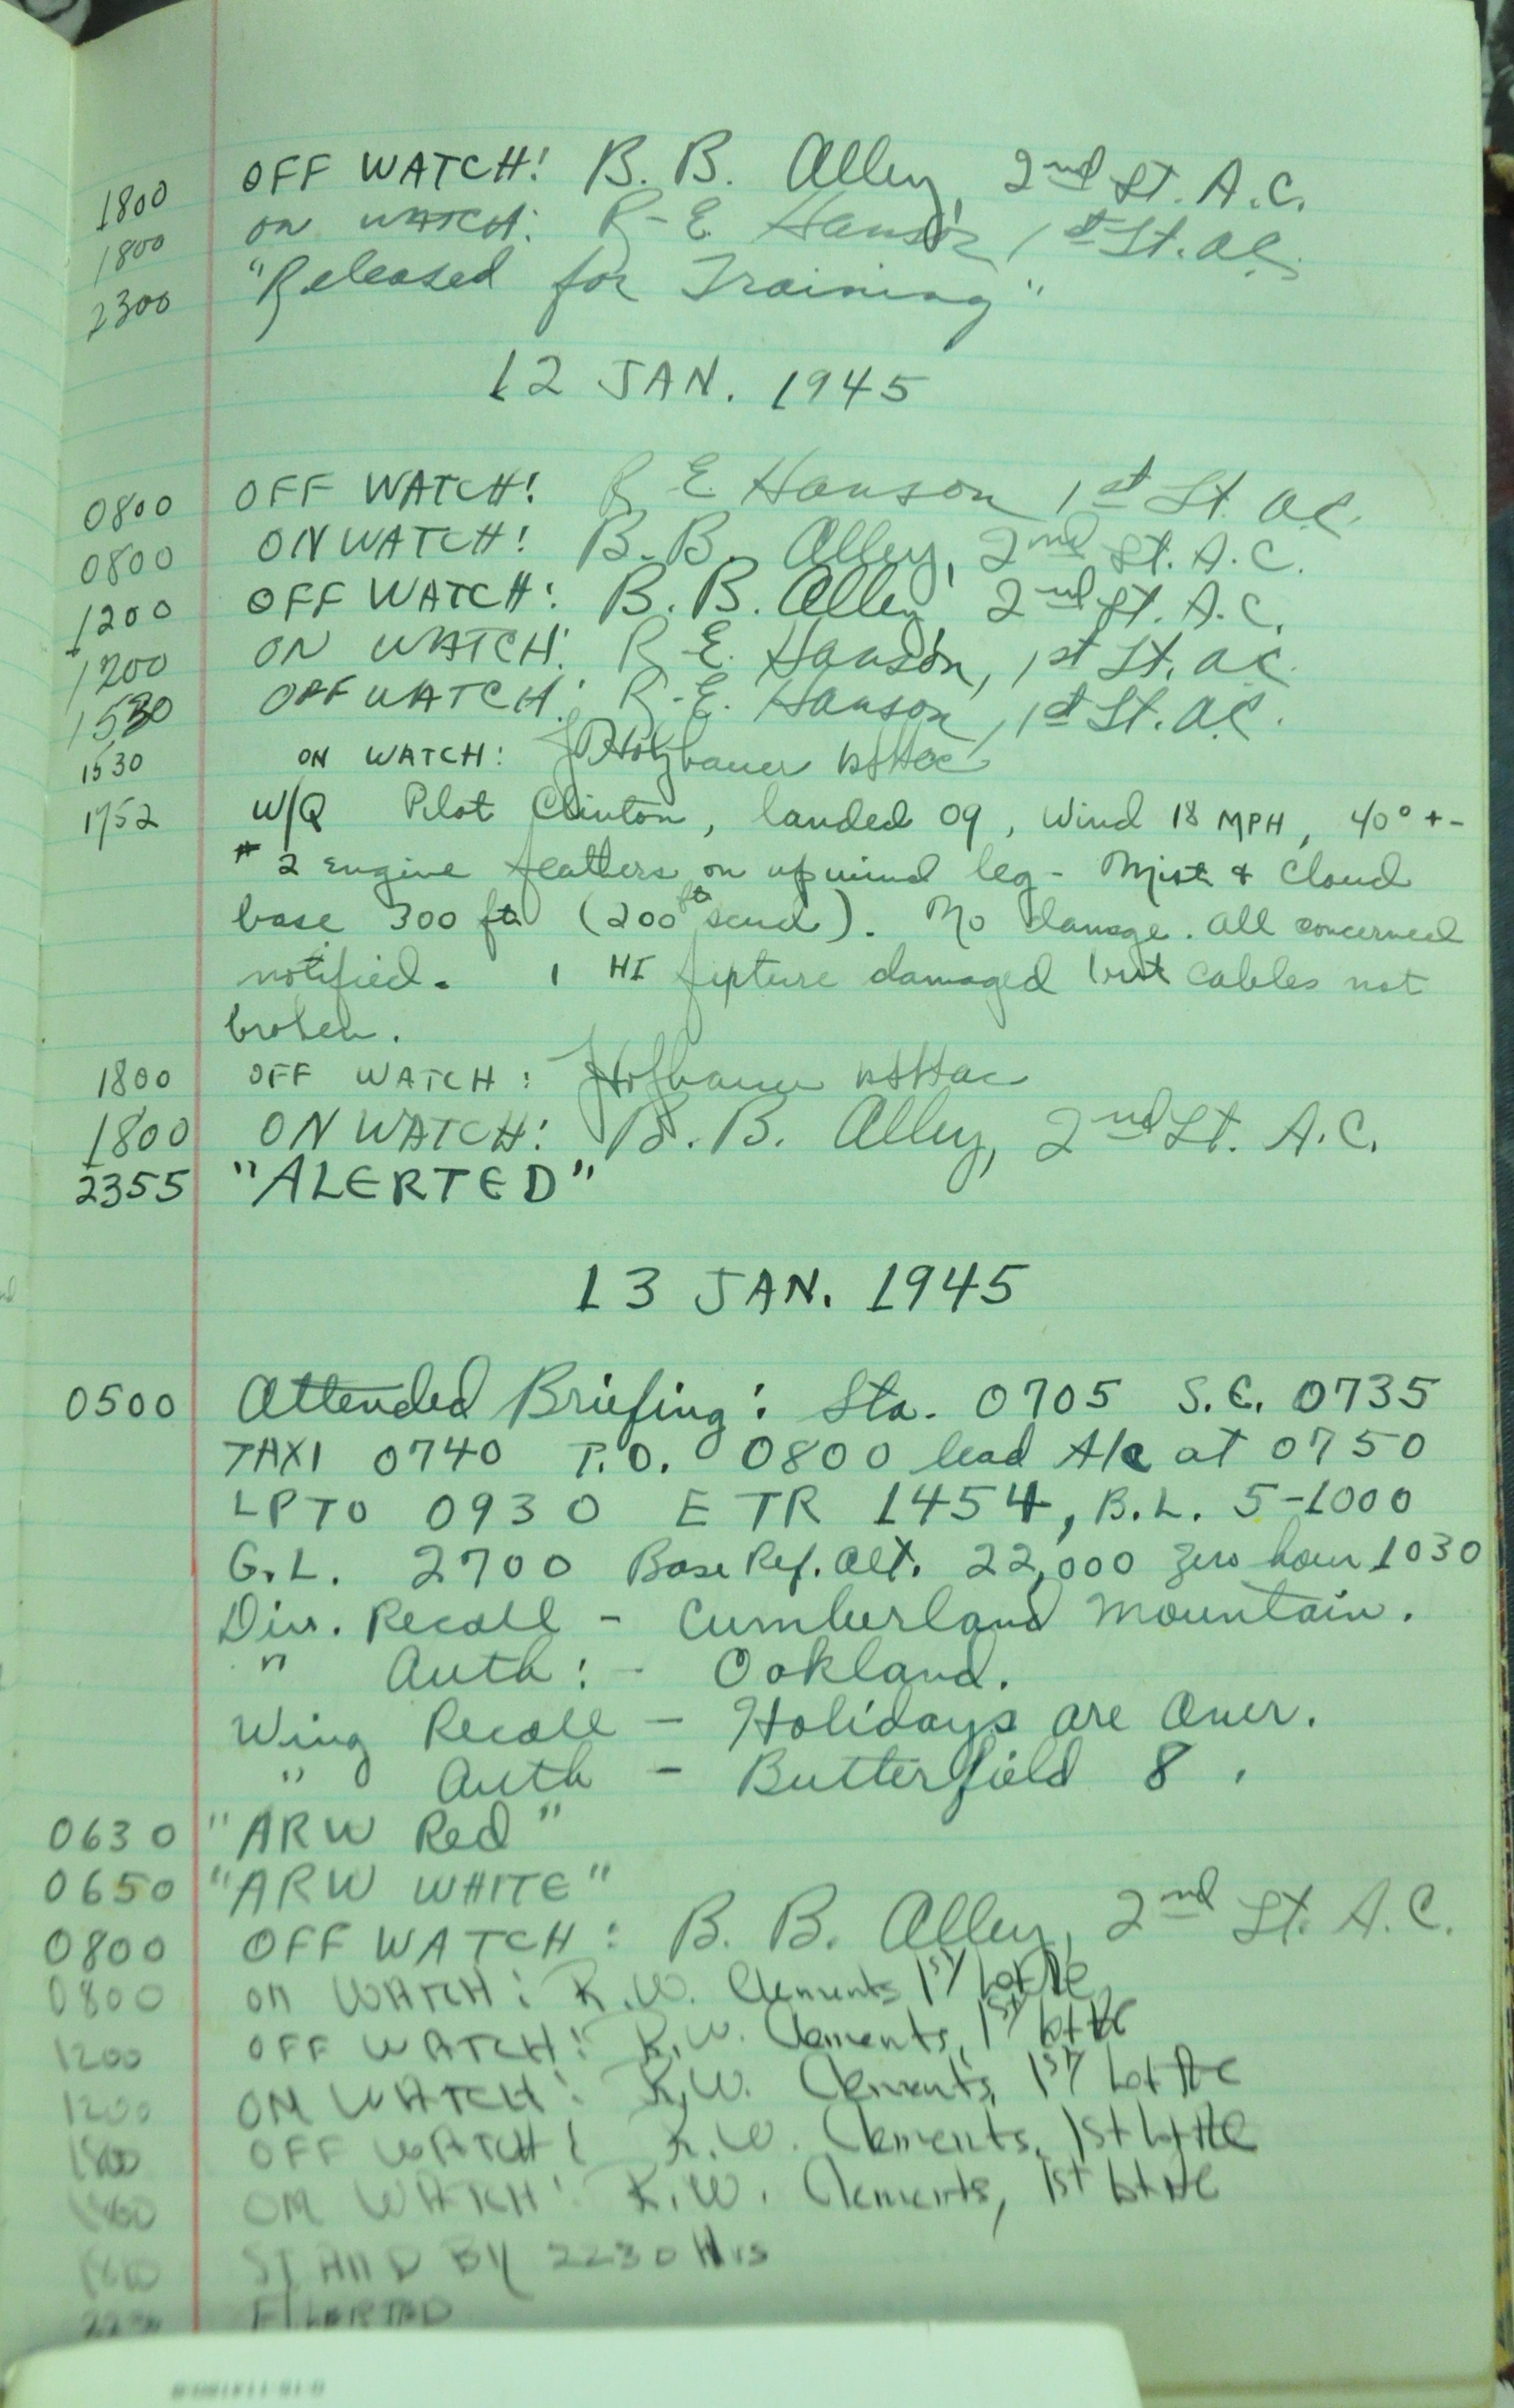 1800 OFF WATCH! B. B. Alley, 2nd Lt. A.C.
1800 ON WATCH: R-E. Hanson, 1st Lt. A.C.
2300 "Released for Training"
12 JAN. 1945
0800 OFF WATCH! R E. Hanson 1st Lt. A.C.
0800 ON WATCH! B. B. Alley, 2nd Lt. A.C.
1200 OFF WATCH: B. B. Alley, 2nd Lt. A.C.
1200 ON WATCH: R-E. Hanson, 1st Lt. A.C.
1530 OFF WATCH: R-E. Hanson, 1st Lt. A.C.
1530 ON WATCH:
1752 W/Q Pilot Clinton, landed 09, Wind 18 MPH, 40° + -
# 2 Engine feathers on upwind leg - Mist & Cloud
base 300 ft (200 ft scud). No damage. All concerned
notified. 1 HI fixture damaged but cables not
broken.
1800 OFF WATCH:
1800 ON WATCH: B. B. Alley, 2nd Lt. A.C.
2355 "ALERTED"
13 JAN. 1945
0500 Attended Briefing: Sta. 0705 S.E. 0735
TAXI 0740 T.O. 0800 lead A/C at 0750
LPTO 0930 ETR 1454, B.L. 5-1000
G.L. 2700 Base Ref. Alt. 22,000 zero hour 1030
Div. Recall - Cumberland Mountain.
" Auth: - Oakland.
Wing Recall - Holidays are Over.
" Auth - Butterfield 8.
0630 "ARW Red"
0650 "ARW WHITE"
0800 OFF WATCH: B. B. Alley, 2nd Lt. A.C.
0800 ON WATCH: R.W. Clements 1ST Lt AC
1200 OFF WATCH: R.W. Clements, 1ST Lt AC
1200 ON WATCH: R.W. Clements, 1ST Lt AC
1800 OFF WATCH: R.W. Clements, 1st Lt AC
1800 ON WATCH: R.W. Clements, 1st Lt AC
STAND BY 2230 Hrs
ALERTED